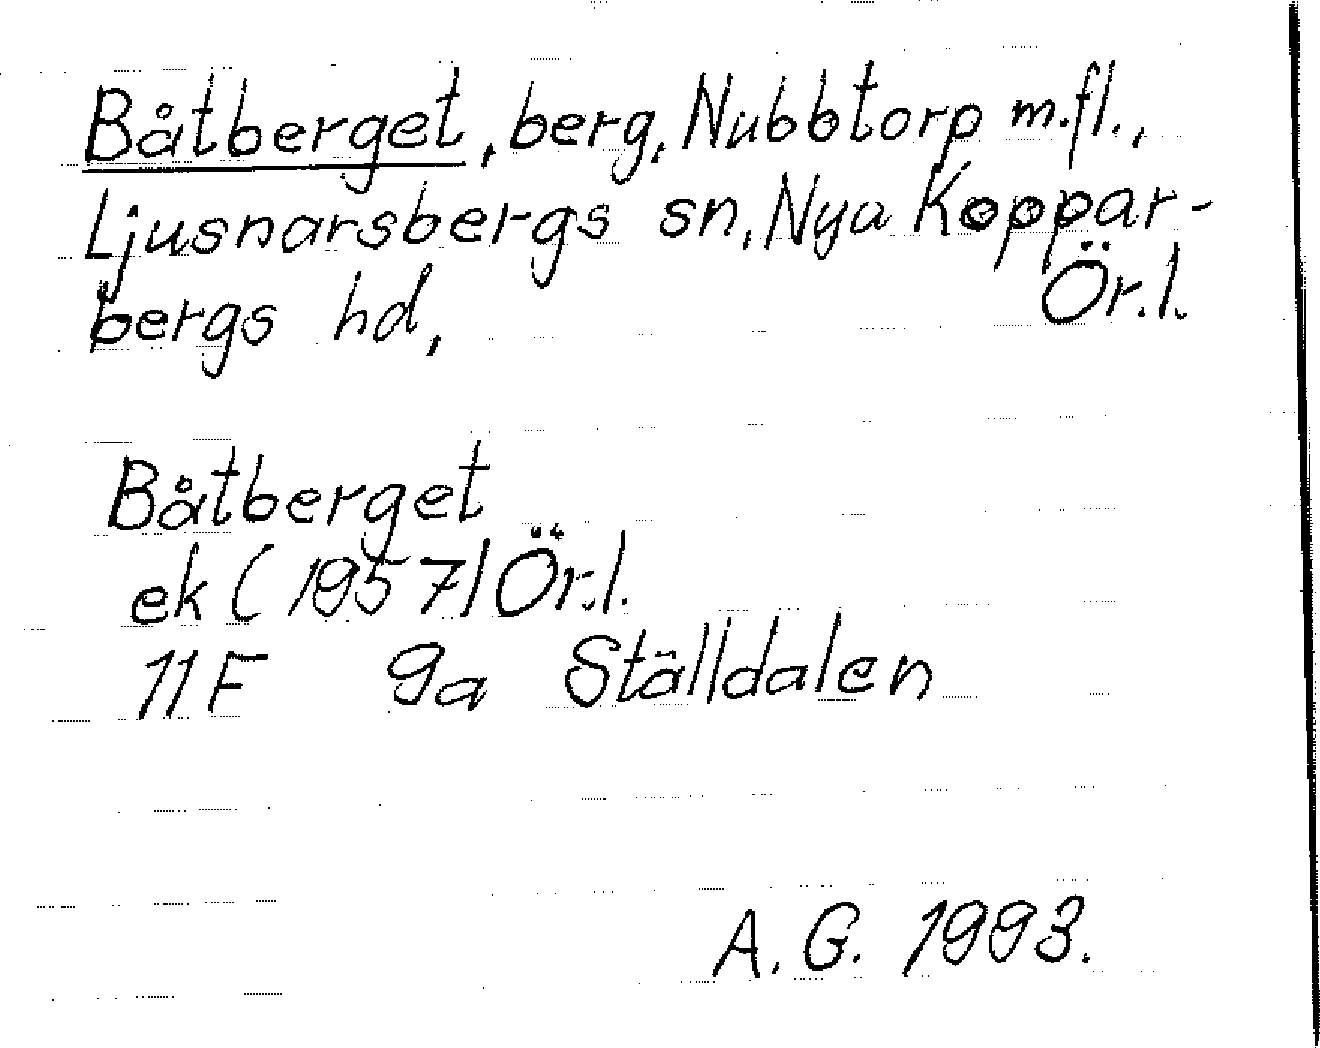 Båtberget, berg, Nubbtorp m.fl.,
Ljusnarsbergs sn, Nya Koppar-
bergs hd, Ör.l.
Båtberget
ek (1957) Ör.l.
11F 9a Ställdalen
A.G. 1993.